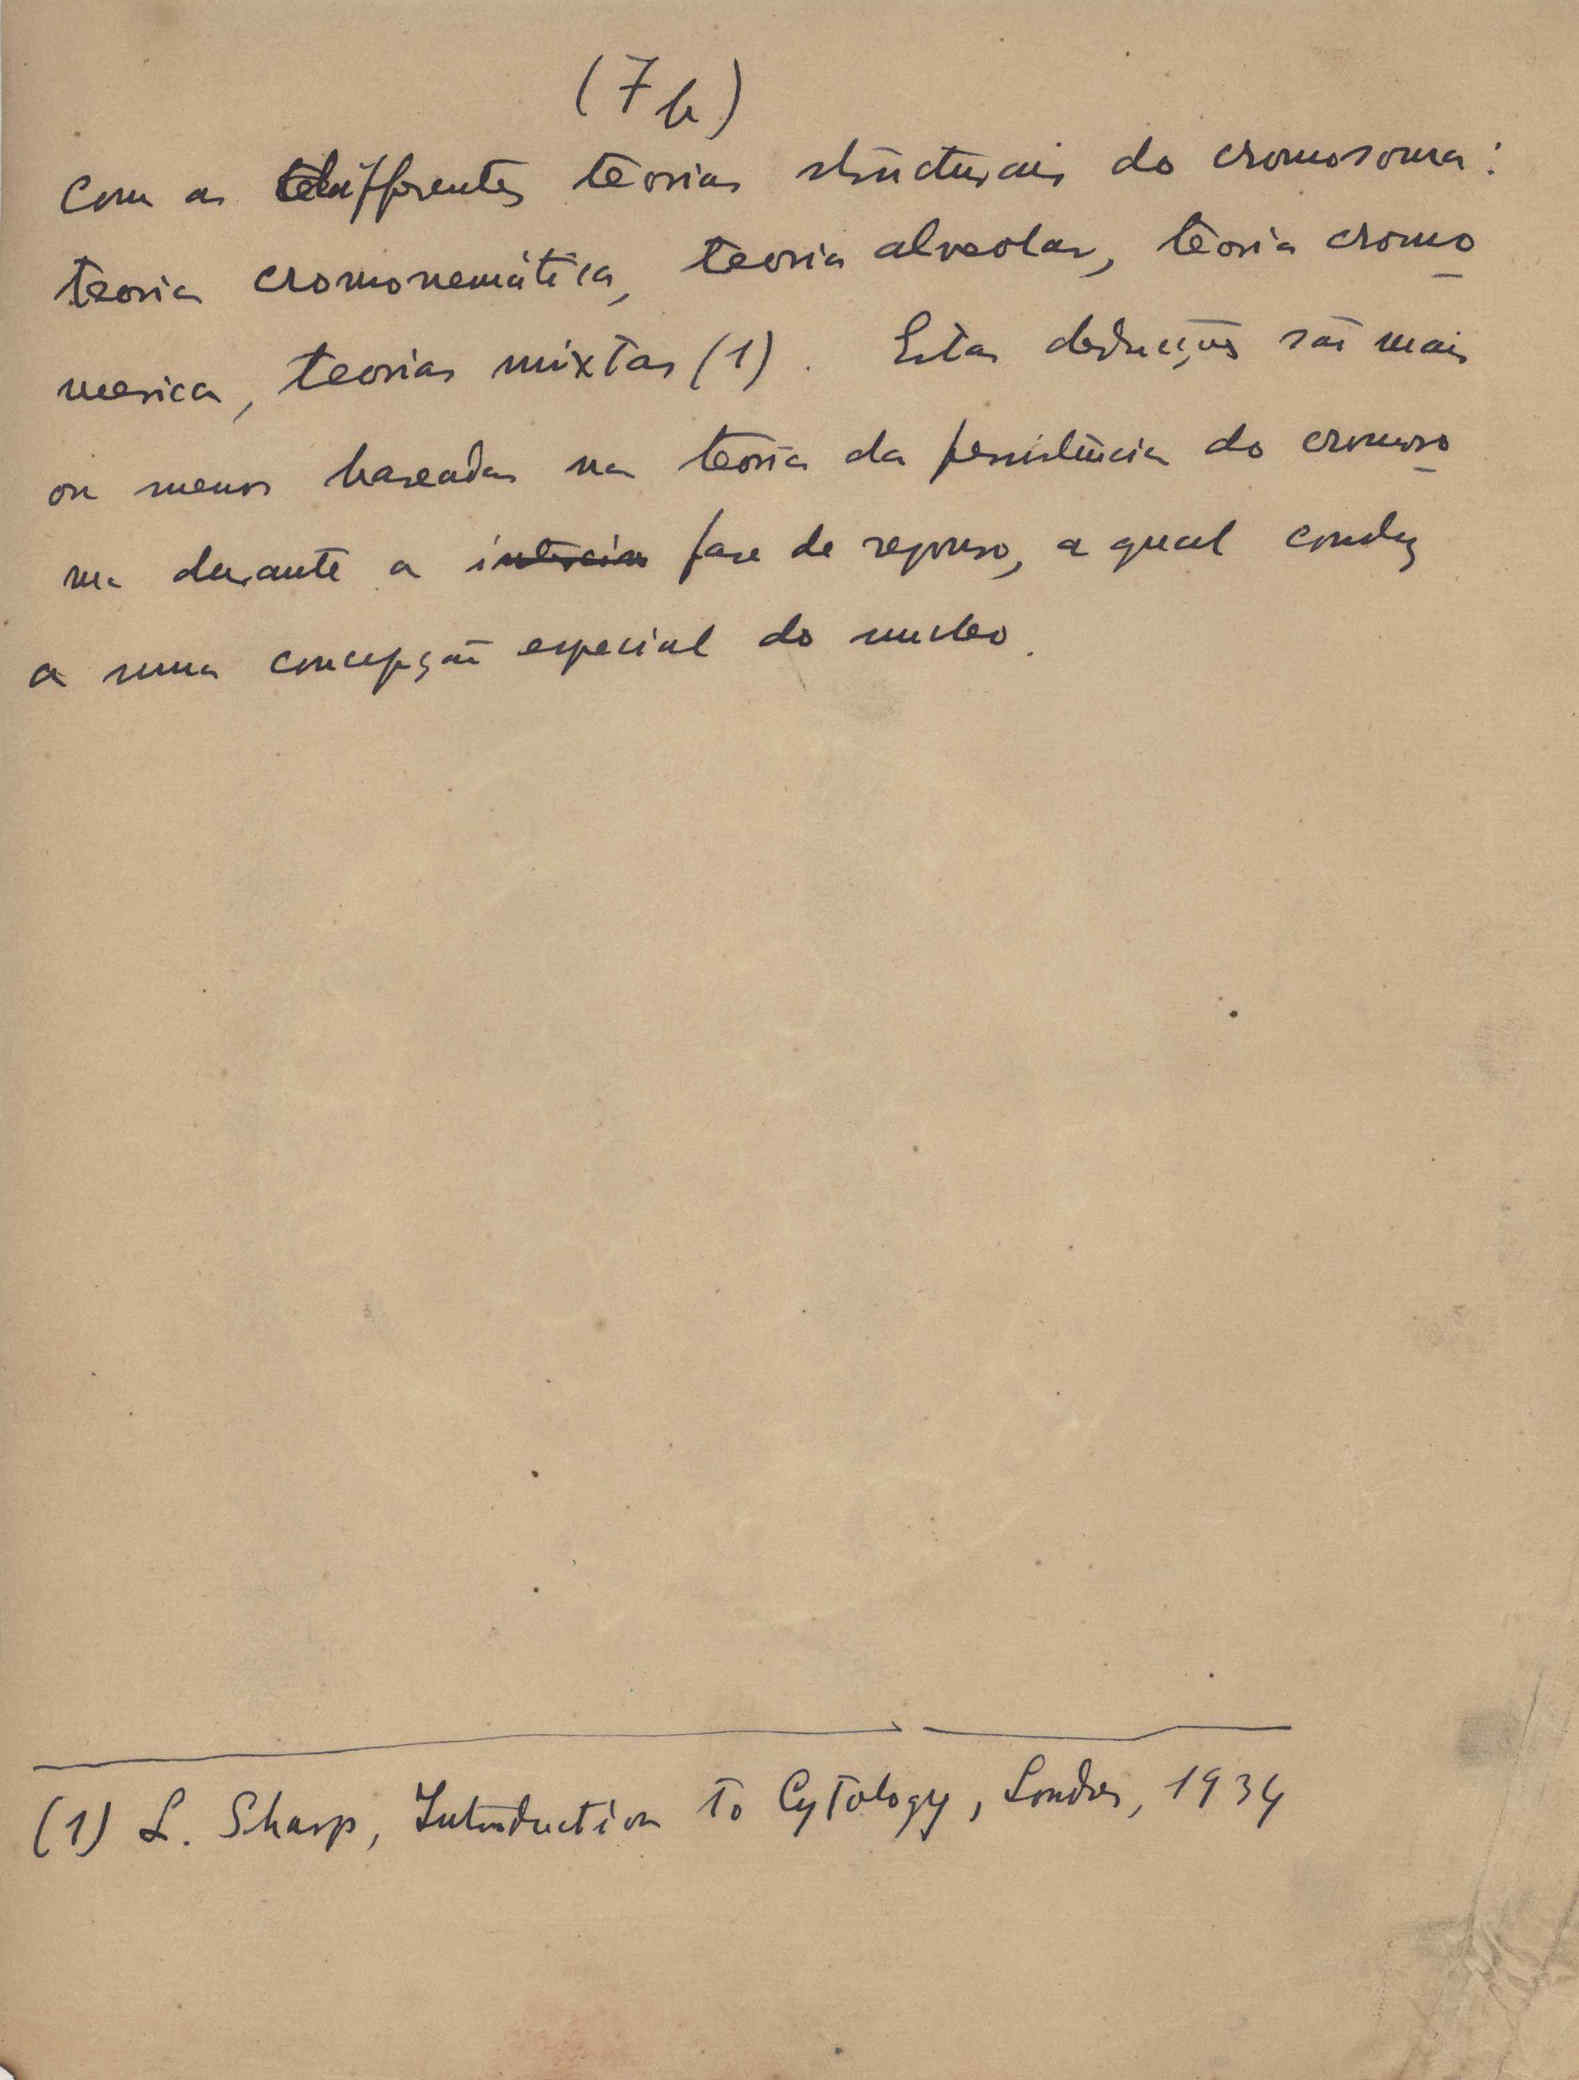 (7b)
com as differentes teorias structurais do cromosoma:
teoria cromonemática, teoria alveolar, teoria cromo
merica, teorias mixtas (1). Estas deducções são mais
ou menos baseadas na teoria da persistência do cromoso
ma durante a fase de repouso, a qual conduz
a uma concepção especial do nucleo.
(1) L. Sharp, Introduction to Cytology, Londres, 1934